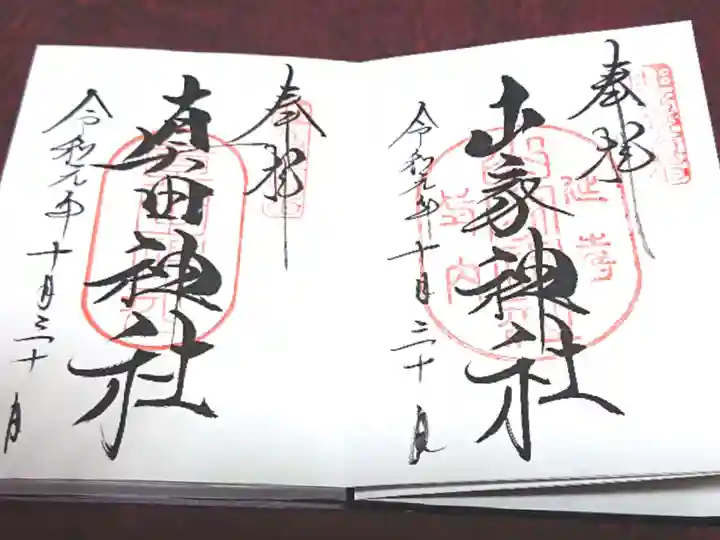 奉拝
山家神社
延喜
式内
令和元年十月三十日
奉拝
真田神社
令和元年十月三十日